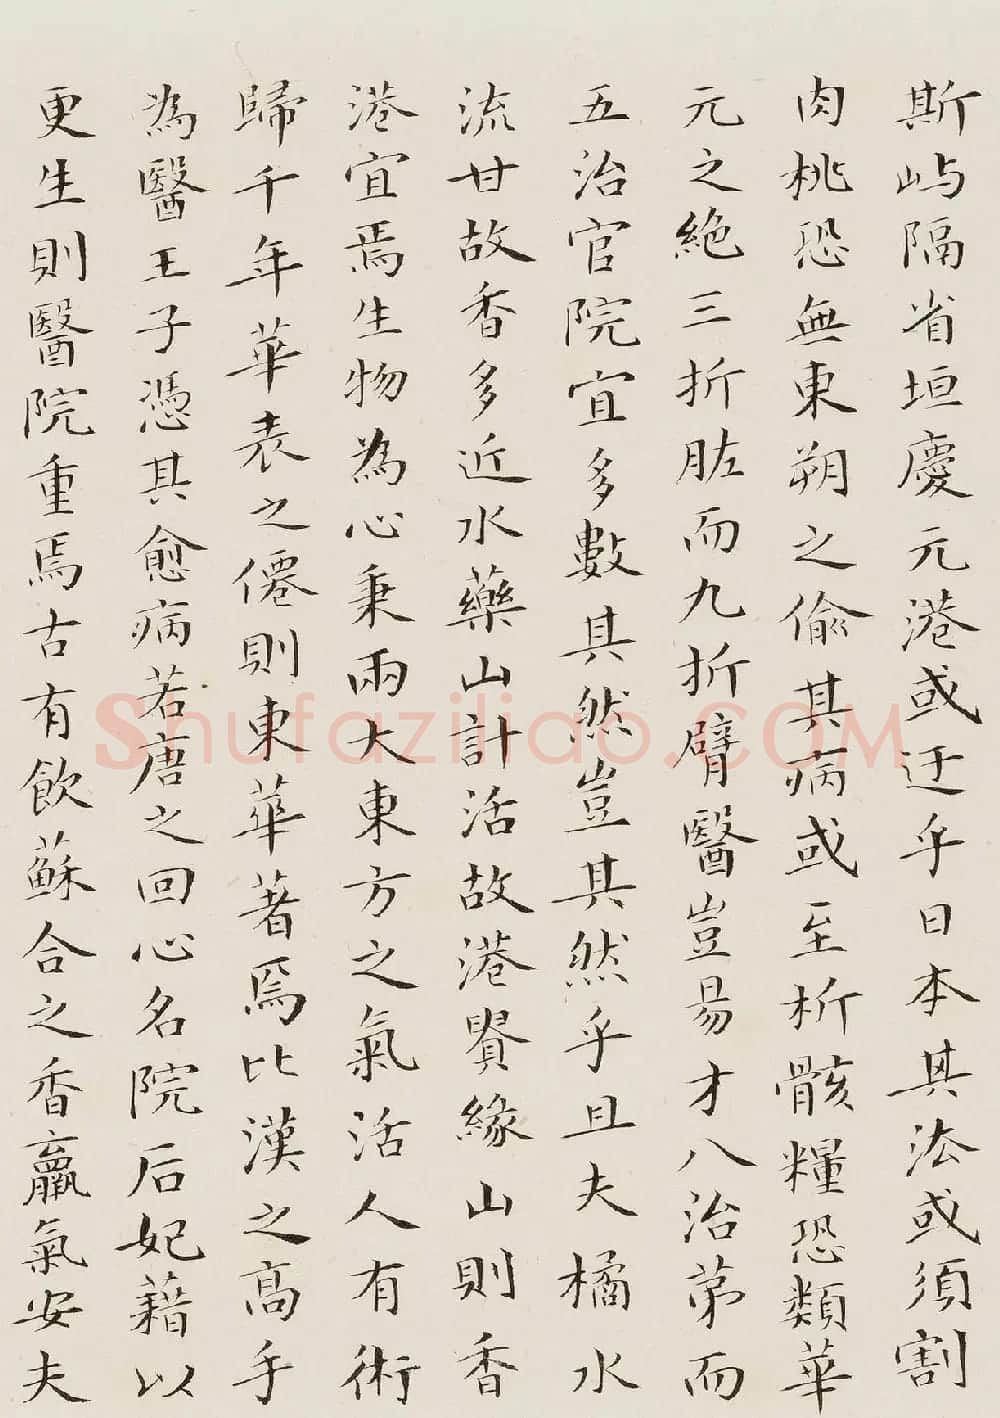 斯屿隔省垣慶元港或迂乎日本其法或須割
肉桃恐無東朔之偷其病或至析骸糧恐類華
元之絶三折肱而九折臂醫豈易才八治第而
五治官院宜多數其然豈其然乎且夫橘水
流甘故香多近水藥山計活故港貴緣山則香
港宜焉生物為心秉兩大東方之氣活人有術
歸千年華表之僊則東華著焉比漢之高手
為醫王子憑其愈病若唐之回心名院后妃藉以
更生則醫院重焉古有飲蘇合之香羸氣安夫
Shufaziliao.COM